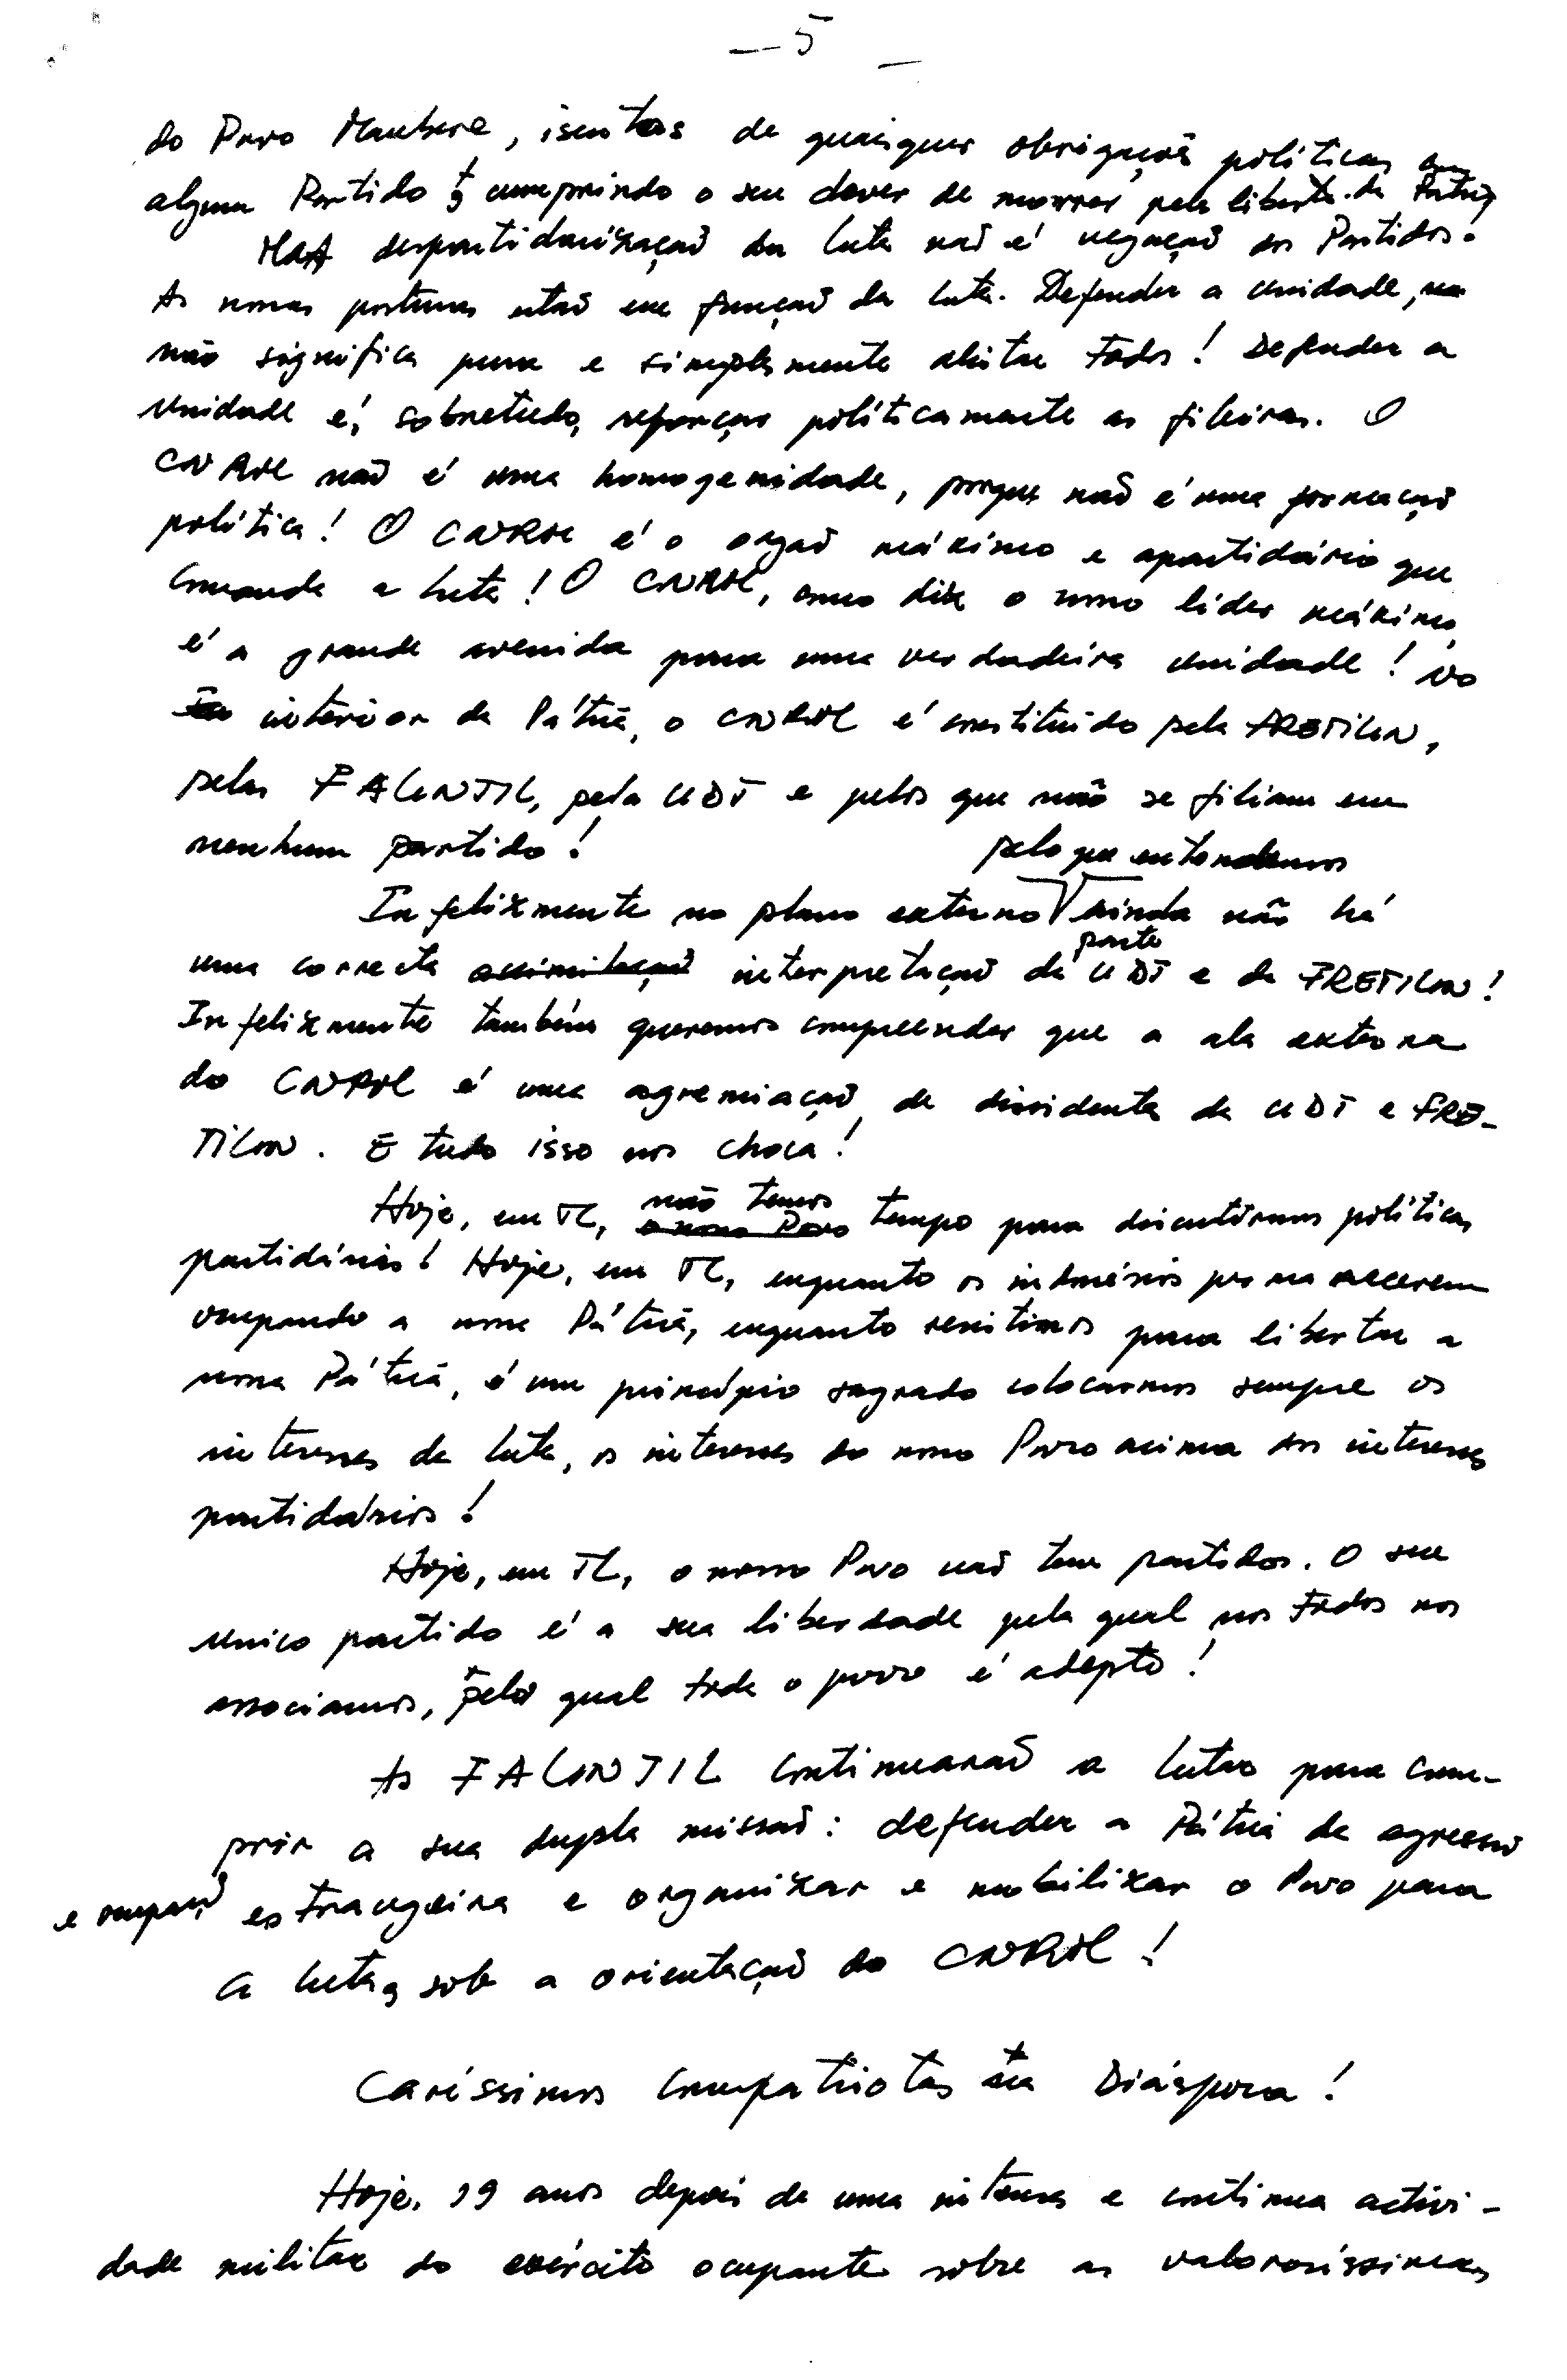 — 5 —
do Povo Maubere, isentas de quaisquer obrigações políticas com
algum Partido e cumprindo o seu dever de morrer pela libert. da Pátria
MAS despartidarização da luta não é negação dos Partidos.
As nossas posturas estão em função da luta. Defender a unidade,
não significa pura e simplesmente aceitar todos! Defender a
unidade é, sobretudo, reforçar políticamente as fileiras. O
CNRM não é uma homogenidade, porque não é uma formação
política! O CNRM é o orgão máximo e apartidário que
comanda a luta! O CNRM, como diz o nosso líder máximo,
é a grande avenida para uma verdadeira unidade! No
interior da Pátria, o CNRM é constituído pela FRETILIN,
pelas FALINTIL, pela UDT e pelos que não se filiam em
nenhum partido!
pelo que entendemos
Infelizmente no plano externo ainda não há
parte
uma correcta assimilação interpretação da UDT e da FRETILIN!
Infelizmente também queremos compreender que a ala externa
do CNRM é uma agremiação de dissidentes da UDT e FRE-
TILIN. E tudo isso nos choca!
não temos
Hoje, em TL, o nosso Povo tempo para discutirmos políticas
partidárias! Hoje, em TL, enquanto os indonésios permanecerem
ocupando a nossa Pátria, enquanto resistimos para libertar a
nossa Pátria, é um princípio sagrado colocarmos sempre os
interesses da luta, os interesses do nosso Povo acima dos interesses
partidários!
Hoje, em TL, o nosso Povo não tem partidos. O seu
unico partido é a sua liberdade pela qual nos todos nos
associamos, pelo qual todo o povo é adepto!
As FALINTIL continuarão a lutar para cum-
prir a sua dupla missão: defender a Pátria da agressão
e ocupação estrangeira e organizar e mobilizar o Povo para
a luta, sob a orientação do CNRM!
Caríssimos Compatriotas na Diáspora!
Hoje, 19 anos depois de uma intensa e contínua activi-
dade militar do exército ocupante sobre as valorosíssimas